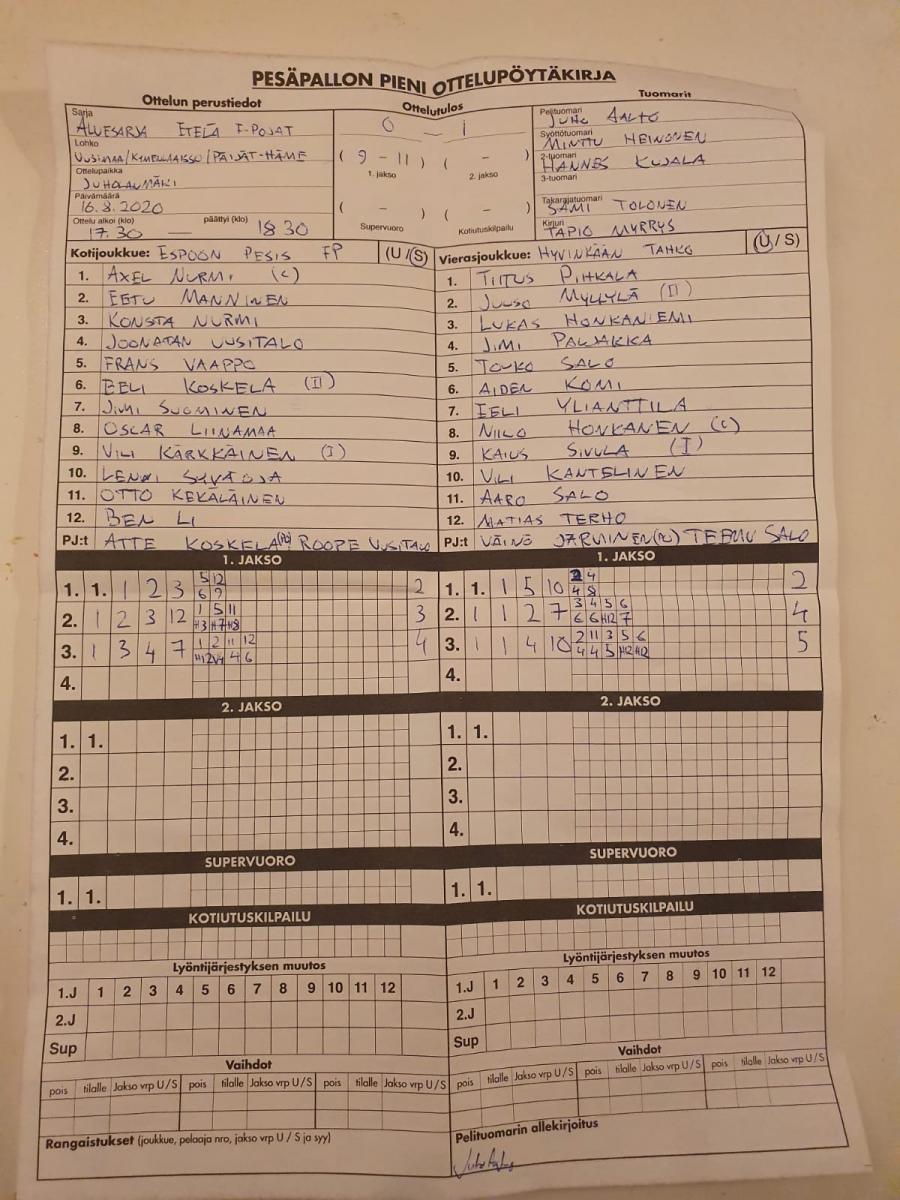 PESÄPALLON PIENI OTTELUPÖYTÄKIRJA
Ottelun perustiedot
Sarja
ALUESARJA ETELÄ F-POJAT
Lohko
UUSIMAA/KYMENLAAKSO/PÄIJÄT-HÄME
Ottelupaikka
JUHOLANMÄKI
Päivämäärä
16.8.2020
Ottelu alkoi (klo) päättyi (klo)
17.30 — 18 30
Ottelutulos
0 - 1
( 9 - 11 ) ( - )
1. jakso 2. jakso
( - ) ( - )
Supervuoro Kotiutuskilpailu
Tuomarit
Pelituomari
JUHO AALTO
Syöttötuomari
MINTTU HEINONEN
2-tuomari
HANNES KUJALA
3-tuomari
Takarajatuomari
SAMI TOLONEN
Kirjuri
TAPIO MYRRYS
Kotijoukkue: ESPOON PESIS FP (U/S)
1. AXEL NURMI (C)
2. EETU MANNINEN
3. KONSTA NURMI
4. JOONATAN UUSITALO
5. FRANS VAAPPO
6. EELI KOSKELA (II)
7. JIMI SUOMINEN
8. OSCAR LIINAMAA
9. VILI KÄRKKÄINEN (I)
10. LENNI SYVÄOJA
11. OTTO KEKÄLÄINEN
12. BEN LI
PJ:t ATTE KOSKELA (PJ) ROOPE UUSITALO
Vierasjoukkue: HYVINKÄÄN TAHKO (U/S)
1. TIITUS PIHKALA
2. JUUSO MYLLYLÄ (II)
3. LUKAS HONKANIEMI
4. JIMI PALJAKKA
5. TOUKO SALO
6. AIDEN KOMI
7. EELI YLIANTTILA
8. NIILO HONKANEN (C)
9. KAIUS SIVULA (I)
10. VILI KANTELINEN
11. AARO SALO
12. MATIAS TERHO
PJ:t VÄINÖ JÄRVINEN (PJ) TEEMU SALO
1. JAKSO
1. 1. 1 2 3 5 12 2
6 9
2. 1 2 3 12 1 5 11 3
H3 H7 H8
3. 1 3 4 7 1 2 11 12 4
H12 V4 4 6
4.
1. JAKSO
1. 1. 1 5 10 2 4 2
4 8
2. 1 1 2 7 3 4 5 6 4
6 6 H12 7
3. 1 1 4 10 2 11 3 5 6 5
4 4 5 H12 H12
4.
2. JAKSO
1. 1.
2.
3.
4.
2. JAKSO
1. 1.
2.
3.
4.
SUPERVUORO
1. 1.
SUPERVUORO
1. 1.
KOTIUTUSKILPAILU
KOTIUTUSKILPAILU
Lyöntijärjestyksen muutos
1.J 1 2 3 4 5 6 7 8 9 10 11 12
2.J
Sup
Lyöntijärjestyksen muutos
1.J 1 2 3 4 5 6 7 8 9 10 11 12
2.J
Sup
Vaihdot
pois tilalle Jakso vrp U/S pois tilalle Jakso vrp U/S pois tilalle Jakso vrp U/S
Vaihdot
pois tilalle Jakso vrp U/S pois tilalle Jakso vrp U/S pois tilalle Jakso vrp U/S
Rangaistukset (joukkue, pelaaja nro, jakso vrp U / S ja syy)
Pelituomarin allekirjoitus